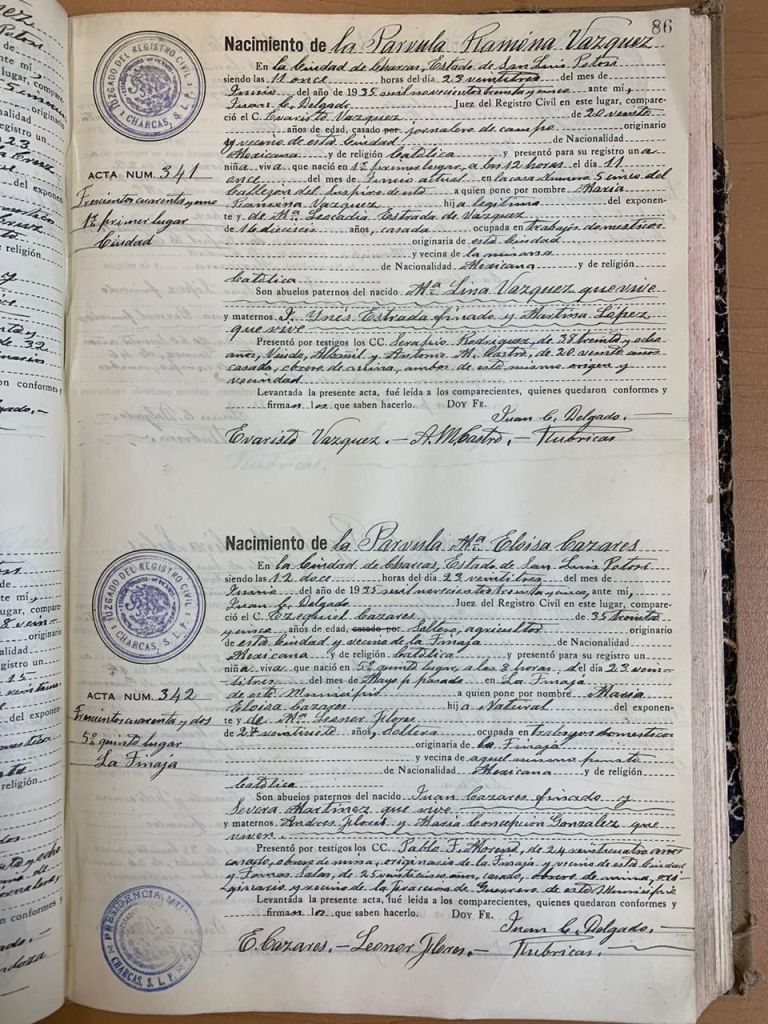 86
Nacimiento de la Parvula Ramona Vazquez
En la Ciudad de Charcas, Estado de San Luis Potosí
siendo las 11 once horas del día 23 veintitres del mes de
Junio del año de 1935 mil novecientos treinta y cinco ante mí,
Juan C. Delgado Juez del Registro Civil en este lugar, compare-
ció el C. Evaristo Vazquez de 20 veinte
años de edad, casado por jornalero de campo originario
y vecino de esta Ciudad de Nacionalidad
Mexicana y de religión Católica y presentó para su registro una
niña viva que nació en 1º primer lugar, a las 12 horas el día 11
once del mes de Junio actual en la casa Numero 5 cinco del
Callejon del Suspiro de esta a quien pone por nombre Maria
Ramona Vazquez hija legitima del exponen-
te y de Mª Leocadia Estrada de Vazquez
de 16 dieciseis años, casada ocupada en trabajos domesticos
originaria de esta Ciudad
y vecina de la misma
de Nacionalidad Mexicana y de religión
Católica
Son abuelos paternos del nacido Mª Lina Vazquez que vive
y maternos J. Ynés Estrada finado y Martina López
que vive
Presentó por testigos los CC. Serapio Rodriguez, de 38 treinta y ocho
años, Viudo, Albañil y Antonio M. Castro, de 20 veinte años
casado, obrero de mina, ambos de este mismo origen y
vecindad
Levantada la presente acta, fué leída a los comparecientes, quienes quedaron conformes y
firman los que saben hacerlo. DOY FE.
Juan C. Delgado.
Evaristo Vazquez. - A. M. Castro. - Rubricas
JUZGADO DEL REGISTRO CIVIL
CHARCAS, S. L. P.
ACTA NUM. 341
Trecientos cuarenta y uno
1º primer lugar
Ciudad
Nacimiento de la Parvula Mª Eloisa Cazares
En la Ciudad de Charcas, Estado de San Luis Potosí
siendo las 12 doce horas del día 23 veintitres del mes de
Junio del año de 1935 mil novecientos treinta y cinco, ante mí,
Juan C. Delgado Juez del Registro Civil en este lugar, compare-
ció el C. Ezequiel Cazares de 35 treinta
y cinco años de edad, casado por Soltero, agricultor originario
de esta Ciudad y vecino de la Tinaja de Nacionalidad
Mexicana y de religión Católica y presentó para su registro un
niña viva que nació en 5º quinto lugar, a las 3 horas, del día 23 vein-
titres del mes de Mayo p. pasado en La Tinaja
de este Municipio a quien pone por nombre Maria
Eloisa Cazares hija Natural del exponen-
te y de Mª Leonor Flores
de 27 veintisiete años, soltera ocupada en trabajos domesticos
originaria de La Tinaja
y vecina a aquel mismo punto
de Nacionalidad Mexicana y de religión
Católica
Son abuelos paternos del nacido Juan Cazares finado y
Severa Martinez que vive
y maternos Andres Flores y Maria Concepción Gonzalez que
viven
Presentó por testigos los CC. Pablo F. Moreno, de 24 veinticuatro años
casado, obrero de mina, originario de la Tinaja y vecino de esta Ciudad
y Tomas Salas, de 25 veinticinco años, casado, obrero de mina, ori-
ginario y vecino de la fraccion de Guerrero de este Municipio
Levantada la presente acta, fué leída a los comparecientes, quienes quedaron conformes y
firman los que saben hacerlo. DOY FE.
Juan C. Delgado.
E. Cazares. - Leonor Flores. - Rubricas
JUZGADO DEL REGISTRO CIVIL
CHARCAS, S. L. P.
ACTA NUM. 342
Trecientos cuarenta y dos
5º quinto lugar
La Tinaja
PRESIDENCIA
CHARCAS, S. L. P.